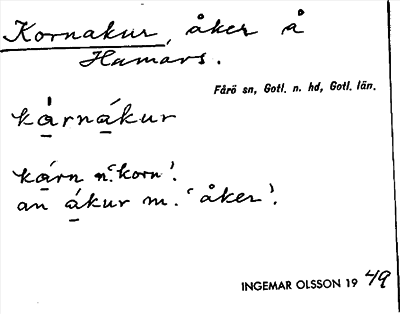 Kornakur, åker å
Hamars.
Fårö sn, Gotl. n. hd, Gotl. län.
kárnákur
kárn n. 'korn'.
an ákur m. 'åker'.
INGEMAR OLSSON 19 49